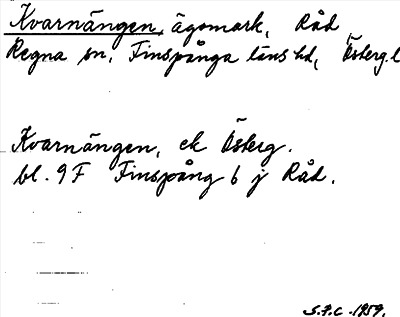 Kvarnängen, ägomark, Råd
Regna sn, Finspånga läns hd, Österg.l
Kvarnängen, ek Österg.
bl. 9F Finspång 6 j Råd.
S.F.C. 1959.